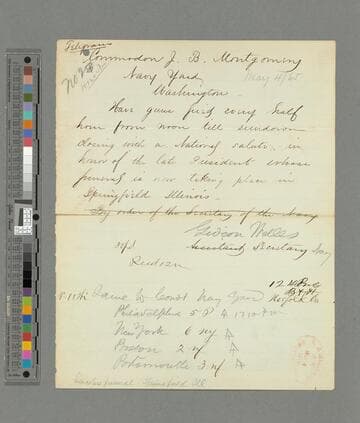 Telegram
Commodore J. B. Montgomery
Navy Yard,
May 4/65
Washington.
Have guns fired every half
hour from noon till sundown
closing with a National salute, in
honor of the late President whose
funeral is now taking place in
Springfield Illinois.
By order of the Secretary of the Navy
Gideon Welles
Assistant Secretary Navy
Same to Comdt Navy Yard
Norfolk Va
Philadelphia 5
New York 6
Boston 2
Portsmouth 3
Lincoln funeral Springfield Ill